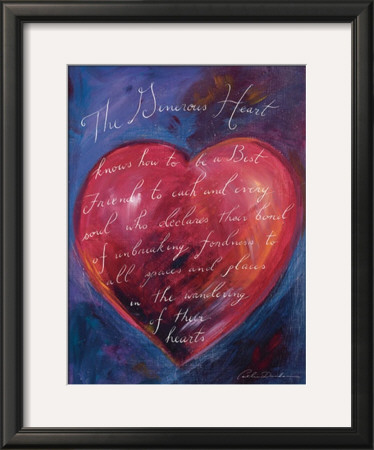 The Generous Heart
knows how to be a Best
Friend to each and every
soul who declares their bond
of unbreaking fondness to
all spaces and places
in the wandering
of their
hearts